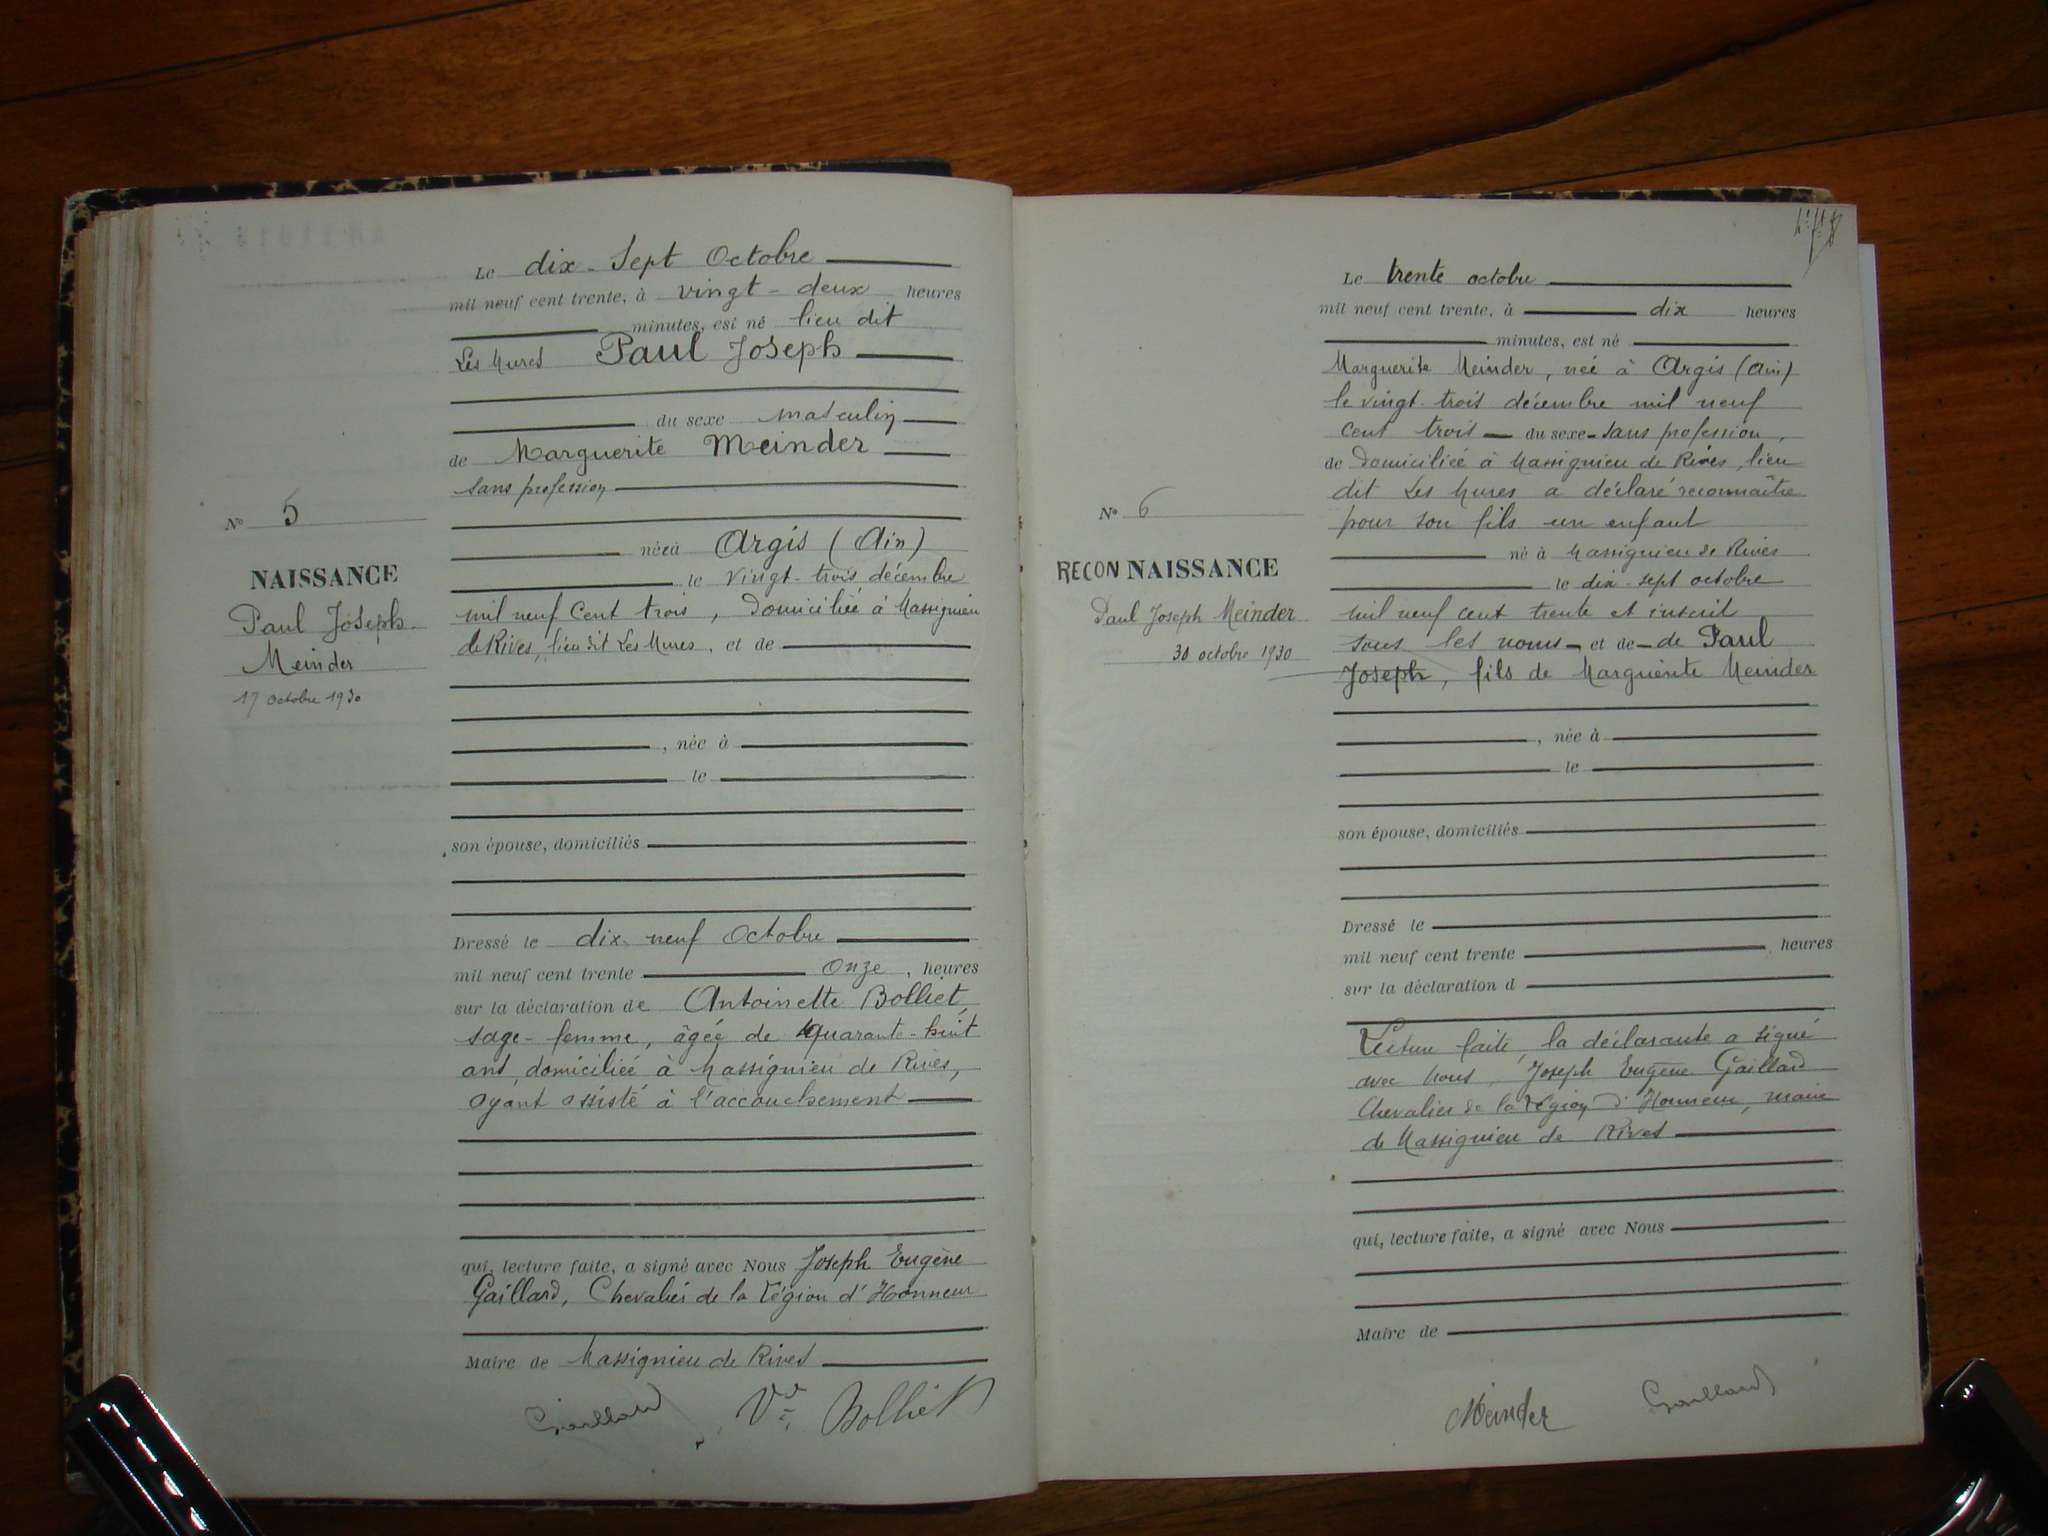 Le dix-sept Octobre
mil neuf cent trente, à vingt-deux heures
minutes, est né lieu dit
Les Mures Paul Joseph
du sexe masculin
de Marguerite Meinder
sans profession
née à Argis (Ain)
le vingt-trois décembre
mil neuf cent trois, domiciliée à Massignieu
de Rives, lieu dit Les Mures, et de
, née à
le
son épouse, domiciliés
Dressé le dix-neuf Octobre
mil neuf cent trente onze, heures
sur la déclaration de Antoinette Bolliet,
sage-femme, âgée de quarante-huit
ans, domiciliée à Massignieu de Rives,
ayant assisté à l'accouchement
qui, lecture faite, a signé avec Nous Joseph Eugène
Gaillard, Chevalier de la Légion d'Honneur
Maire de Massignieu de Rives
Gaillard Vve Bolliet
N° 5
NAISSANCE
Paul Joseph
Meinder
17 Octobre 1930
Le trente octobre
mil neuf cent trente, à dix heures
minutes, est né
Marguerite Meinder, née à Argis (Ain)
le vingt-trois décembre mil neuf
cent trois du sexe sans profession,
de domiciliée à Massignieu de Rives, lieu
dit Les Mures a déclaré reconnaître
pour son fils un enfant
né à Massignieu de Rives
le dix-sept octobre
mil neuf cent trente et inscrit
sous les noms et de de Paul
Joseph, fils de Marguerite Meinder
, née à
le
son épouse, domiciliés
Dressé le
mil neuf cent trente , heures
sur la déclaration d
Lecture faite, la déclarante a signé
avec Nous, Joseph Eugène Gaillard
Chevalier de la Légion d'Honneur, maire
de Massignieu de Rives
qui, lecture faite, a signé avec Nous
Maire de
Meinder Gaillard
N° 6
RECONNAISSANCE
Paul Joseph Meinder
30 octobre 1930